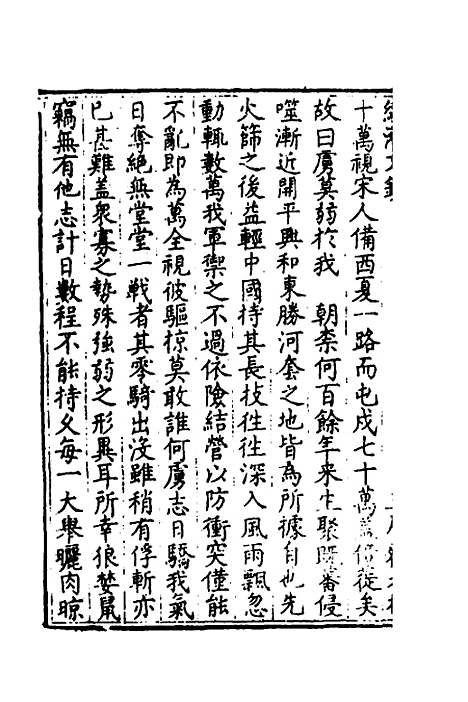 十萬視宋人備西夏一路而屯戍七十萬萬倍蓰矣
故曰虜莫弱於我　朝柰何百餘年来生聚旣蕃侵
噬漸近開平興和東勝河套之地皆為所據自也先
火篩之後益輕中國恃其長技徃徃深入風雨飄忽
動輒數萬我軍禦之不過依險結營以防衝突僅能
不亂即為萬全視彼驅掠莫敢誰何虜志日驕我氣
日奪絕無堂堂一戰者其零騎出没雖稍有俘斬亦
已甚雞盖衆寡之勢殊強弱之形異耳所幸狼婪鼠
竊無有他志計日數程不能持乆每一大舉曬肉晾